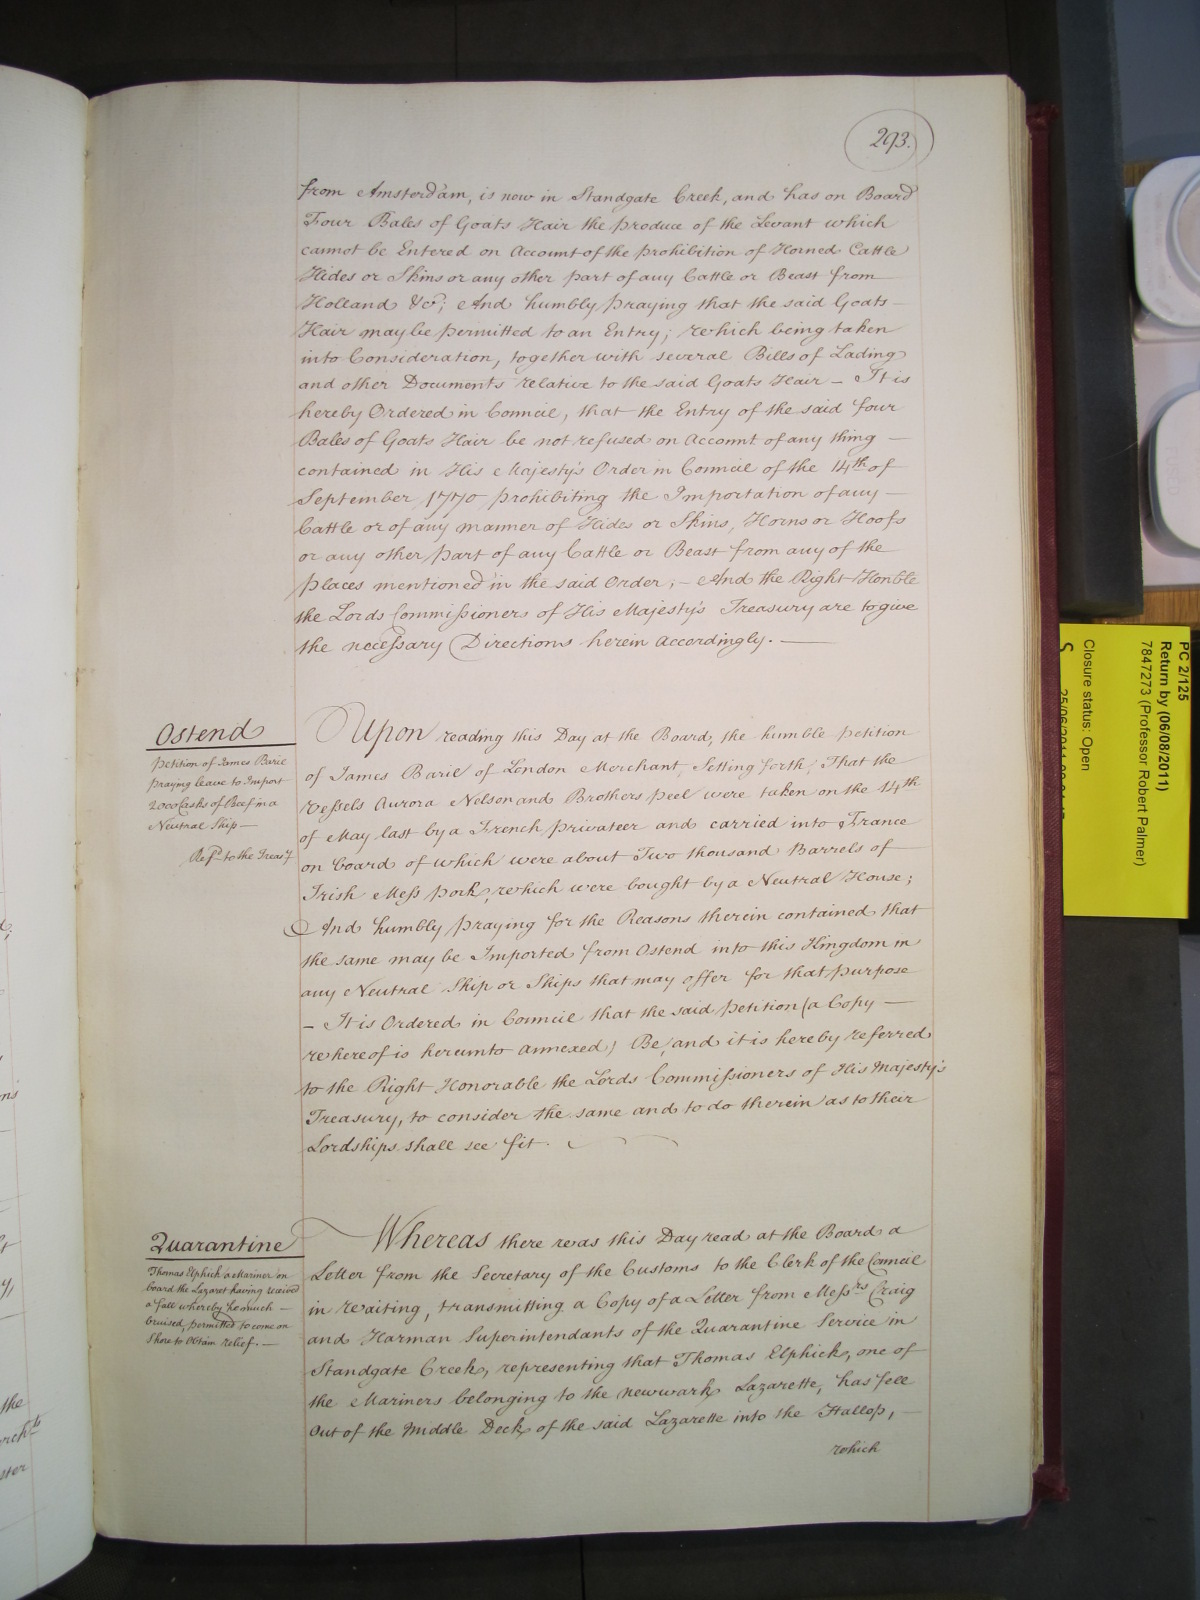 293.
from Amsterdam, is now in Standgate Creek, and has on Board
Four Bales of Goats Hair the produce of the Levant which
cannot be Entered on Account of the prohibition of Horned Cattle
Hides or Skins or any other part of any Cattle or Beast from
Holland &c; And humbly praying that the said Goats
Hair may be permitted to an Entry; which being taken
into Consideration, together with several Bills of Lading
and other Documents relative to the said Goats Hair — It is
hereby Ordered in Council, that the Entry of the said four
Bales of Goats Hair be not refused on Account of any thing —
contained in His Majesty's Order in Council of the 14th of
September 1770 prohibiting the Importation of any —
Cattle or of any manner of Hides or Skins, Horns or Hoofs
or any other part of any Cattle or Beast from any of the
places mentioned in the said Order; — And the Right Honble
the Lords Commissioners of His Majesty's Treasury are to give
the necessary Directions herein Accordingly. —
Ostend
Petition of James Barie
praying leave to Import
2000 Casks of Beef in a
Neutral Ship —
Refd to the Treasy
Upon reading this Day at the Board, the humble petition
of James Barie of London Merchant, Setting forth, That the
vessels Aurora Nelson and Brothers Peel were taken on the 14th
of May last by a French privateer and carried into France
on board of which were about Two thousand Barrels of
Irish Mess Pork, which were bought by a Neutral House;
And humbly praying for the Reasons therein contained that
the same may be Imported from Ostend into this Kingdom in
any Neutral Ship or Ships that may offer for that purpose
— It is Ordered in Council that the said petition (a Copy —
whereof is hereunto Annexed) Be, and it is hereby referred
to the Right Honorable the Lords Commissioners of His Majesty's
Treasury, to consider the same and to do therein as to their
Lordships shall see fit.
Quarantine
Thomas Elphick a Mariner on
board the Lazaret having received
a fall whereby he much —
bruised, permitted to come on
Shore to Obtain relief. —
Whereas there was this Day read at the Board a
Letter from the Secretary of the Customs to the Clerk of the Council
in waiting, transmitting a Copy of a Letter from Messrs Craig
and Harman Superintendants of the Quarantine Service in
Standgate Creek, representing that Thomas Elphick, one of
the Mariners belonging to the Newark Lazarette, has fell
Out of the Middle Deck of the said Lazarette into the Hallop, —
which
PC 2/125
Return by (06/08/2011)
7847273 (Professor Robert Palmer)
Closure status: Open